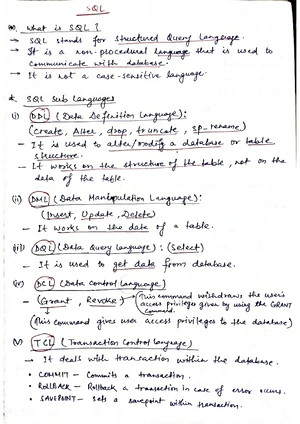 SQL
What is SQL ?
→ SQL stands for Structured Query Language.
→ It is a non-procedural language that is used to
communicate with database.
→ It is not a case-sensitive language.
* SQL Sub Languages
(i) DDL (Data Definition Language):
(Create, Alter, drop, truncate, sp-rename)
- It is used to alter/modify a database or table
structure.
- It works on the structure of the table, not on the
data of the table.
(ii) DML (Data Manipulation Language):
(Insert, Update, Delete)
- It works on the data of a table.
(iii) DQL (Data Query language): (Select)
- It is used to get data from database.
(iv) DCL (Data Control language)
- (Grant, Revoke) → This command withdraws the user's
access privileges given by using the GRANT
Command.
(This command gives user access privileges to the database)
(v) TCL (Transaction Control language)
- It deals with transaction within the database.
• COMMIT - Commits a transaction.
• ROLLBACK - Rollback a transaction in case of error occurs.
• SAVEPOINT - Sets a savepoint within transaction.